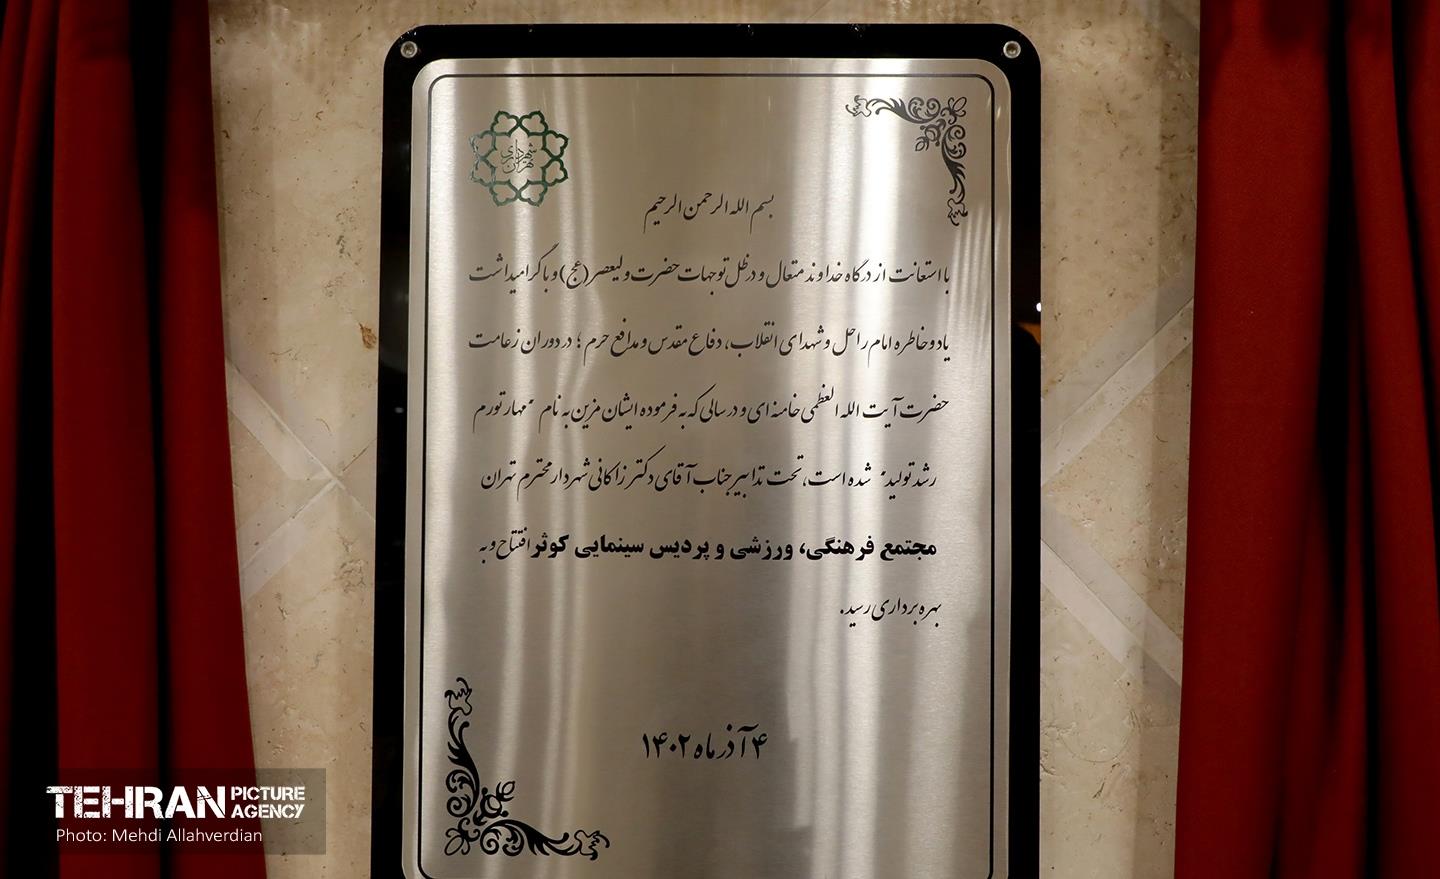 شهرداری تهران
بسم الله الرحمن الرحیم
با استعانت از درگاه خداوند متعال و در ظل توجهات حضرت ولیعصر (عج) و با گرامیداشت
یاد و خاطره امام راحل و شهدای انقلاب، دفاع مقدس و مدافع حرم ؛ در دوران زعامت
حضرت آیت الله العظمی خامنه ای و در سالی که به فرموده ایشان مزین به نام "مهار تورم
رشد تولید" شده است، تحت تدابیر جناب آقای دکتر زاکانی شهردار محترم تهران
مجتمع فرهنگی، ورزشی و پردیس سینمایی کوثر افتتاح و به
بهره برداری رسید.
۴ آذر ماه ۱۴۰۲
TEHRAN PICTURE AGENCY
Photo: Mehdi Allahverdian